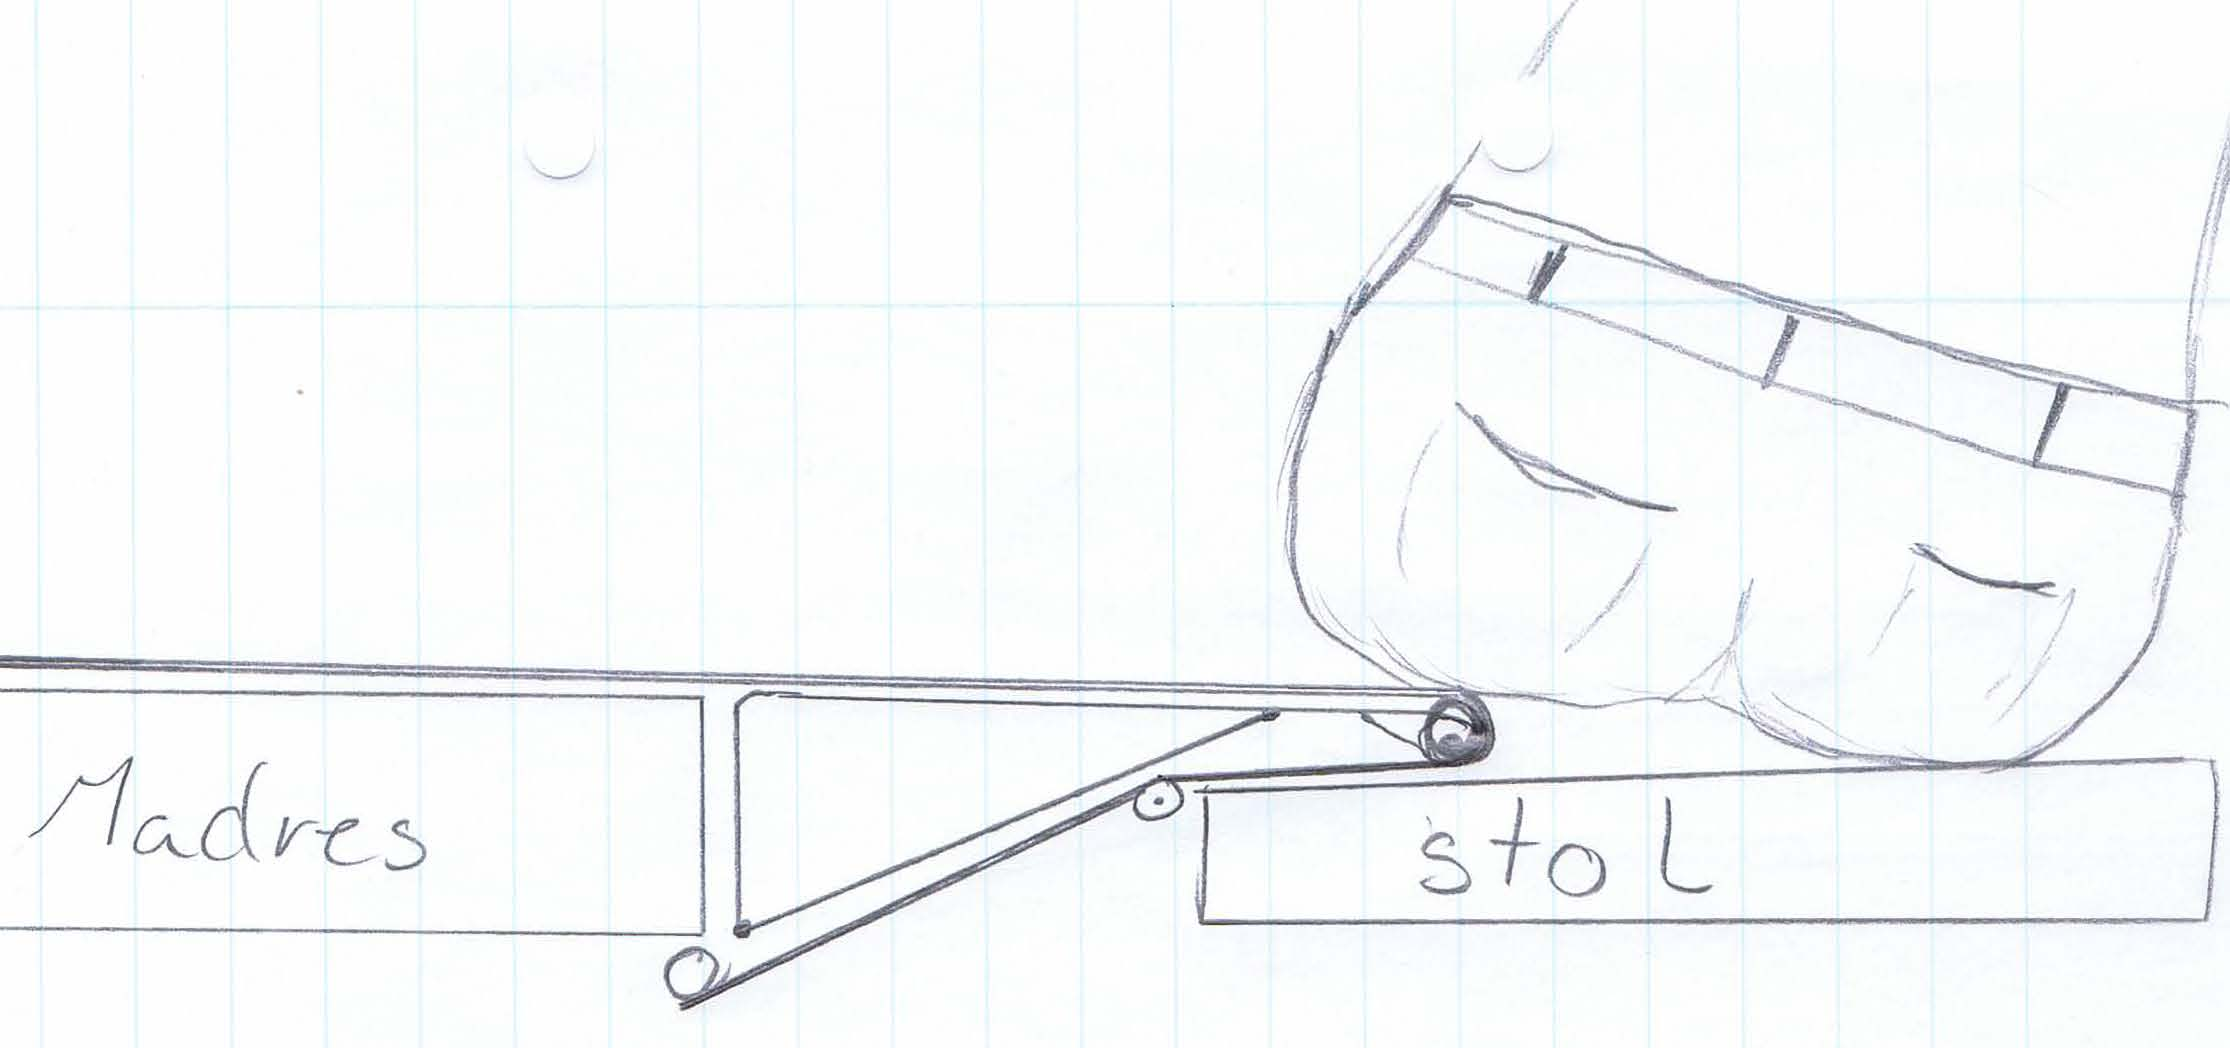 Madres
stol